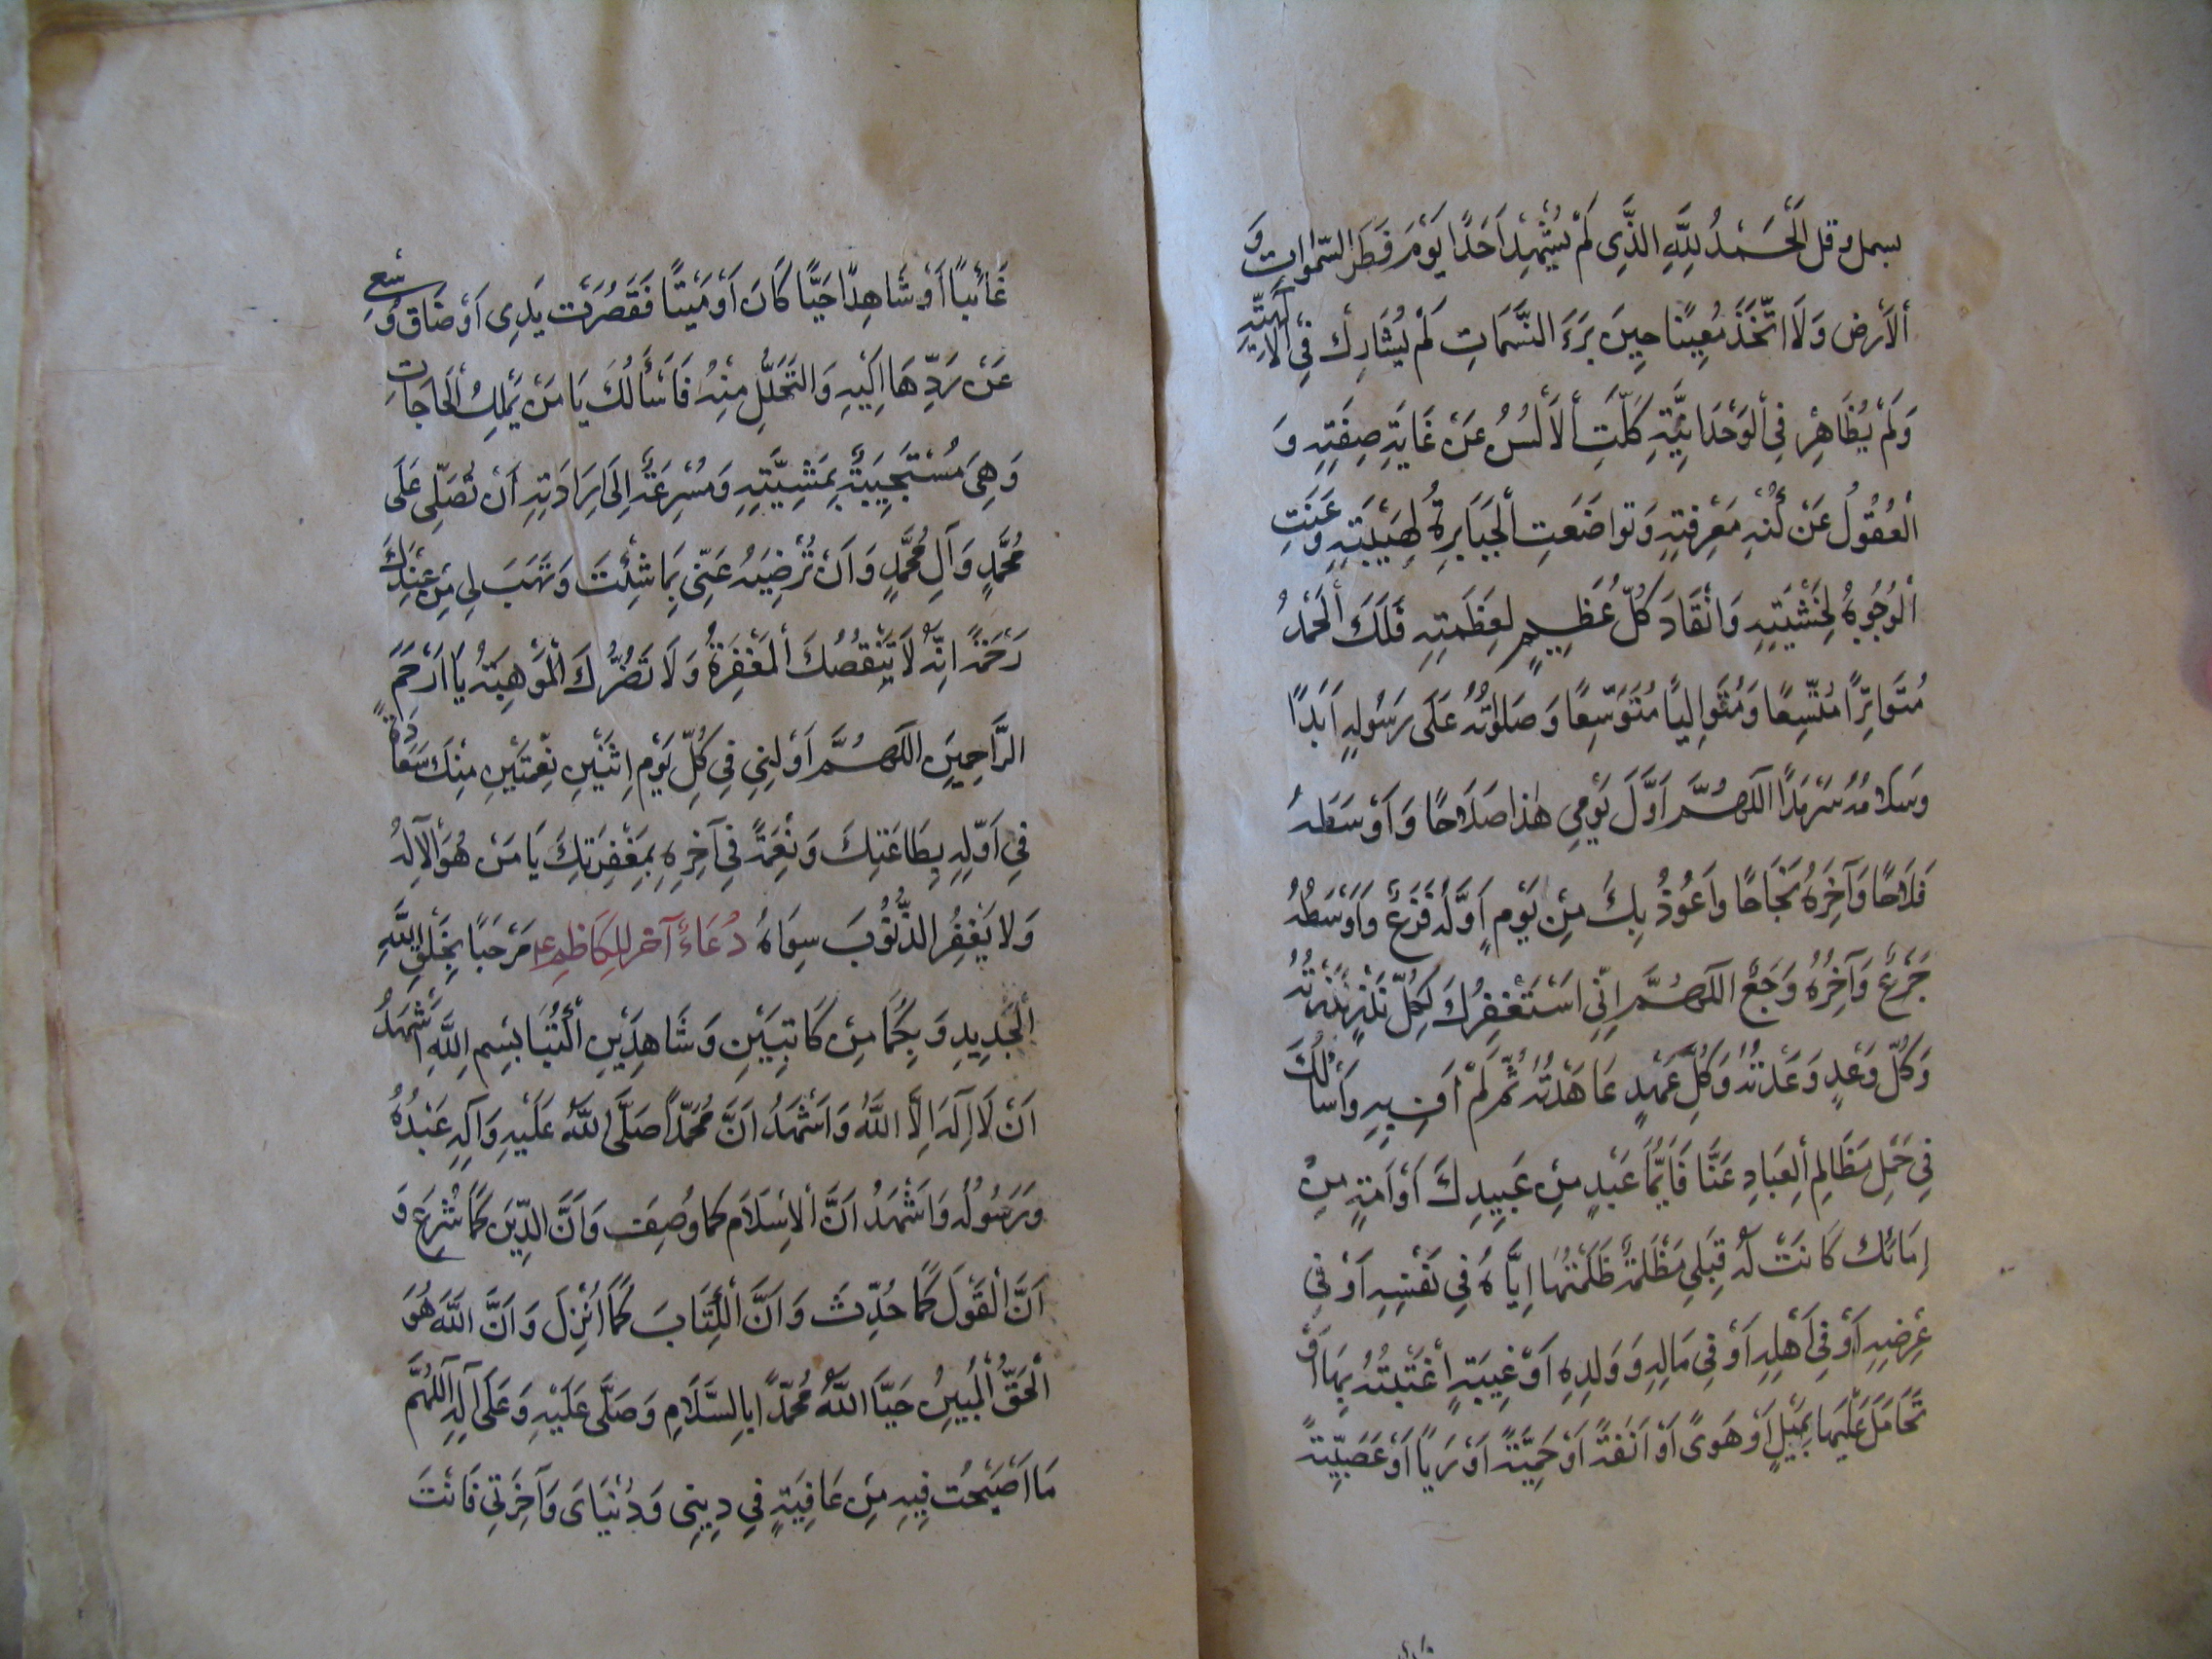 بسمل وقل اَلْحَمْدُ لِلَّهِ الَّذِى لَمْ يُشْهِدْ اَحَدًا يَوْمَ فَطَرَ السَّمٰوَاتِ وَ
اْلاَرْضَ وَلَا اتَّخَذَ مُعِينًا حِينَ بَرَءَ النَّسَمَاتِ لَمْ يُشَارِكْ فِى اْلاِلٰهِيَّةِ
وَلَمْ يُظَاهِرْ فِى الْوَحْدَانِيَّةِ كَلَّتِ اْلاَلْسُنُ عَنْ غَايَةِ صِفَتِهِ وَ
الْعُقُولُ عَنْ كُنْهِ مَعْرِفَتِهِ وَتَوَاضَعَتِ الْجَبَابِرَةُ لِهَيْبَتِهِ وَعَنَتِ
الْوُجُوهُ لِخَشْيَتِهِ وَانْقَادَ كُلُّ عَظِيمٍ لِعَظَمَتِهِ فَلَكَ الْحَمْدُ
مُتَوَاتِرًا مُتَّسِقًا وَمُتَوَالِيًا مُتَوَسِّعًا وَصَلَوٰتُهُ عَلَى رَسُولِهِ اَبَدًا
وَسَلَامُهُ سَرْمَدًا اَللّهُمَّ اَوَّلَ يَوْمِى هٰذَا صَلَاحًا وَاَوْسَطَهُ
فَلَاحًا وَآخِرَهُ نَجَاحًا وَاَعُوذُ بِكَ مِنْ يَوْمٍ اَوَّلُهُ فَزَعٌ وَاَوْسَطُهُ
جَزَعٌ وَآخِرُهُ وَجَعٌ اَللّهُمَّ اِنِّى اَسْتَغْفِرُكَ لِكُلِّ نَذْرٍ نَذَرْتُهُ
وَكُلِّ وَعْدٍ وَعَدْتُهُ وَكُلِّ عَهْدٍ عَاهَدْتُهُ ثُمَّ لَمْ اَفِ بِهِ وَاَسْاَلُكَ
فِى حَمْلِ مَظَالِمِ الْعِبَادِ عَنَّا فَاَيُّمَا عَبْدٍ مِنْ عَبِيدِكَ اَوْ اَمَةٍ مِنْ
اِمَائِكَ كَانَتْ لَهُ قِبَلِى مَظْلَمَةٌ ظَلَمْتُهَا اِيَّاهُ فِى نَفْسِهِ اَوْ فِى
عِرْضِهِ اَوْ فِى اَهْلِهِ اَوْ فِى مَالِهِ وَوَلَدِهِ اَوْ غِيبَةٍ اغْتَبْتُهُ بِهَا اَوْ
تَحَامَلَ عَلَيْهَا بِمَيْلٍ اَوْ هَوًى اَوْ اَنَفَةً اَوْ حَمِيَّةً اَوْ رِيَاً اَوْ عَصَبِيَّةً
غَائِبًا اَوْ شَاهِدًا حَيًّا كَانَ اَوْ مَيِّتًا فَقَصُرَتْ يَدِى اَوْ ضَاقَ وُسْعِى
عَنْ رَدِّهَا اِلَيْهِ وَالتَّحَلُّلِ مِنْهُ فَاَسْأَلُكَ يَا مَنْ يَمْلِكُ الْحَاجَاتِ
وَهِىَ مُسْتَجِيبَةٌ بِمَشِيَّتِهِ وَمُسْرِعَةٌ اِلَى اِرَادَتِهِ اَنْ تُصَلِّى عَلَى
مُحَمَّدٍ وَآلِ مُحَمَّدٍ وَاَنْ تُرْضِيَهُ عَنِّى بِمَا شِئْتَ وَتَهَبَ لِى مِنْ عِنْدِكَ
رَحْمَةً اِنَّهُ لَا تَنْقُصُكَ الْمَغْفِرَةُ وَلَا تَضُرُّكَ الْمَوْهِبَةُ يَا اَرْحَمَ
الرَّاحِمِينَ اَللّهُمَّ اَوْلِنِى فِى كُلِّ يَوْمِ اِثْنَيْنِ نِعْمَتَيْنِ مِنْكَ سَعَادَةً
فِى اَوَّلِهِ بِطَاعَتِكَ وَنِعْمَةً فِى آخِرِهِ بِمَغْفِرَتِكَ يَا مَنْ هُوَ اْلاِلٰهُ
وَلَا يَغْفِرُ الذُّنُوبَ سِوَاهُ دُعَاءٌ آخر للكَاظِمِ ع مَرْحَبًا بِخَلْقِ اللَّهِ
الْجَدِيدِ وَبِكُمَا مِنْ كَاتِبَيْنِ وَشَاهِدَيْنِ اُكْتُبَا بِسْمِ اللَّهِ اَشْهَدُ
اَنْ لَا اِلَهَ اِلَّا اللَّهُ وَاَشْهَدُ اَنَّ مُحَمَّدًا صَلَّى اللَّهُ عَلَيْهِ وَآلِهِ عَبْدُهُ
وَرَسُولُهُ وَاَشْهَدُ اَنَّ اْلاِسْلَامَ كَمَا وُصِفَ وَاَنَّ الدِّينَ كَمَا شُرِعَ وَ
اَنَّ الْقَوْلَ كَمَا حُدِّثَ وَاَنَّ الْكِتَابَ كَمَا اُنْزِلَ وَاَنَّ اللَّهَ هُوَ
الْحَقُّ الْمُبِينُ حَيَّا اللَّهُ مُحَمَّدًا بِالسَّلَامِ وَصَلَّى عَلَيْهِ وَعَلَى آلِهِ اَللّهُمَّ
مَا اَصْبَحْتُ فِيهِ مِنْ عَافِيَةٍ فِى دِينِى وَدُنْيَاىَ وَآخِرَتِى فَاَنْتَ